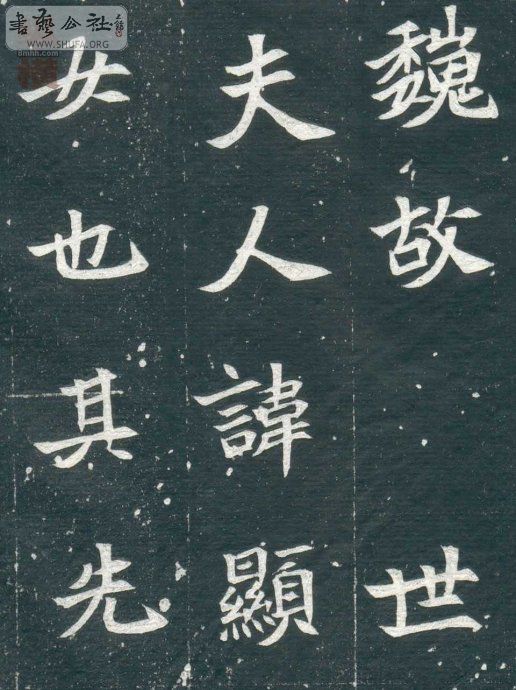 魏故世
夫人諱顯
女也其先
書藝公社
WWW.SHUFA.ORG
8mhh.com